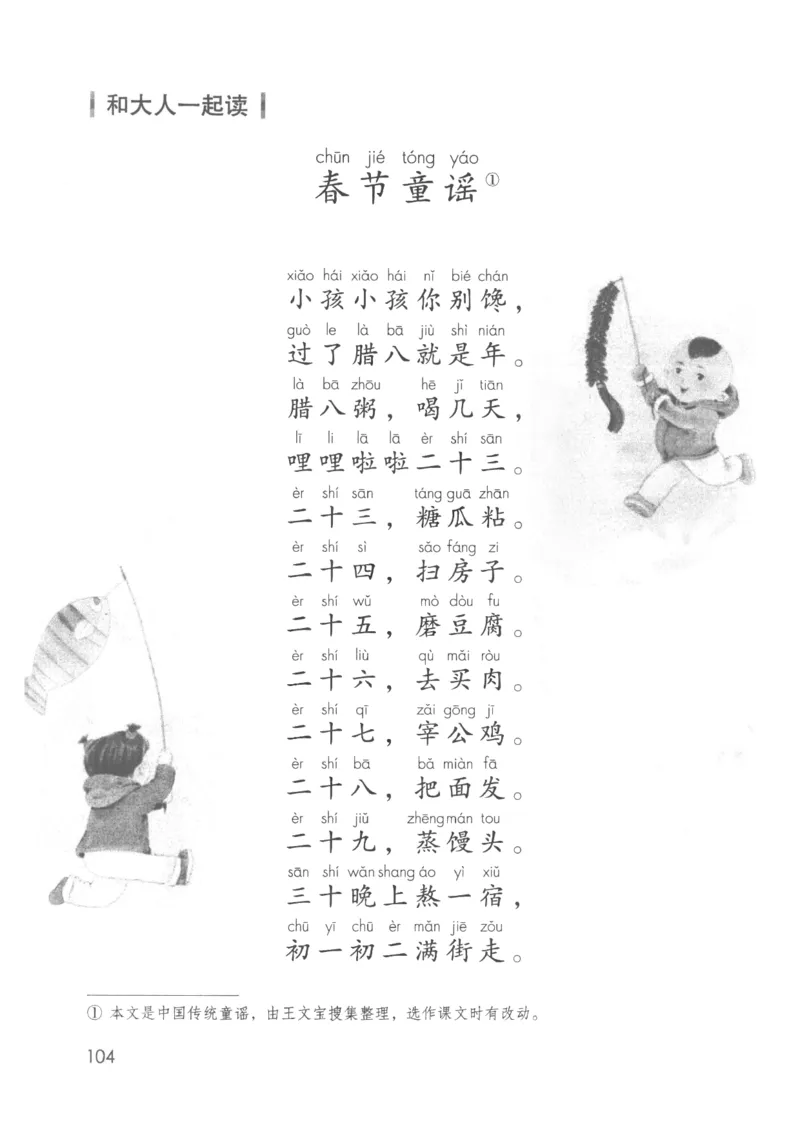 和大人一起读
chūn jié tóng yáo
春节童谣①
xiǎo hái xiǎo hái nǐ bié chán
小孩小孩你别馋，
guò le là bā jiù shì nián
过了腊八就是年。
là bā zhōu hē jǐ tiān
腊八粥，喝几天，
lī li lā lā èr shí sān
哩哩啦啦二十三。
èr shí sān táng guā zhān
二十三，糖瓜粘。
èr shí sì sǎo fáng zi
二十四，扫房子。
èr shí wǔ mò dòu fu
二十五，磨豆腐。
èr shí liù qù mǎi ròu
二十六，去买肉。
èr shí qī zǎi gōng jī
二十七，宰公鸡。
èr shí bā bǎ miàn fā
二十八，把面发。
èr shí jiǔ zhēng mán tou
二十九，蒸馒头。
sān shí wǎn shang áo yì xiǔ
三十晚上熬一宿，
chū yī chū èr mǎn jiē zǒu
初一初二满街走。
① 本文是中国传统童谣，由王文宝搜集整理，选作课文时有改动。
104